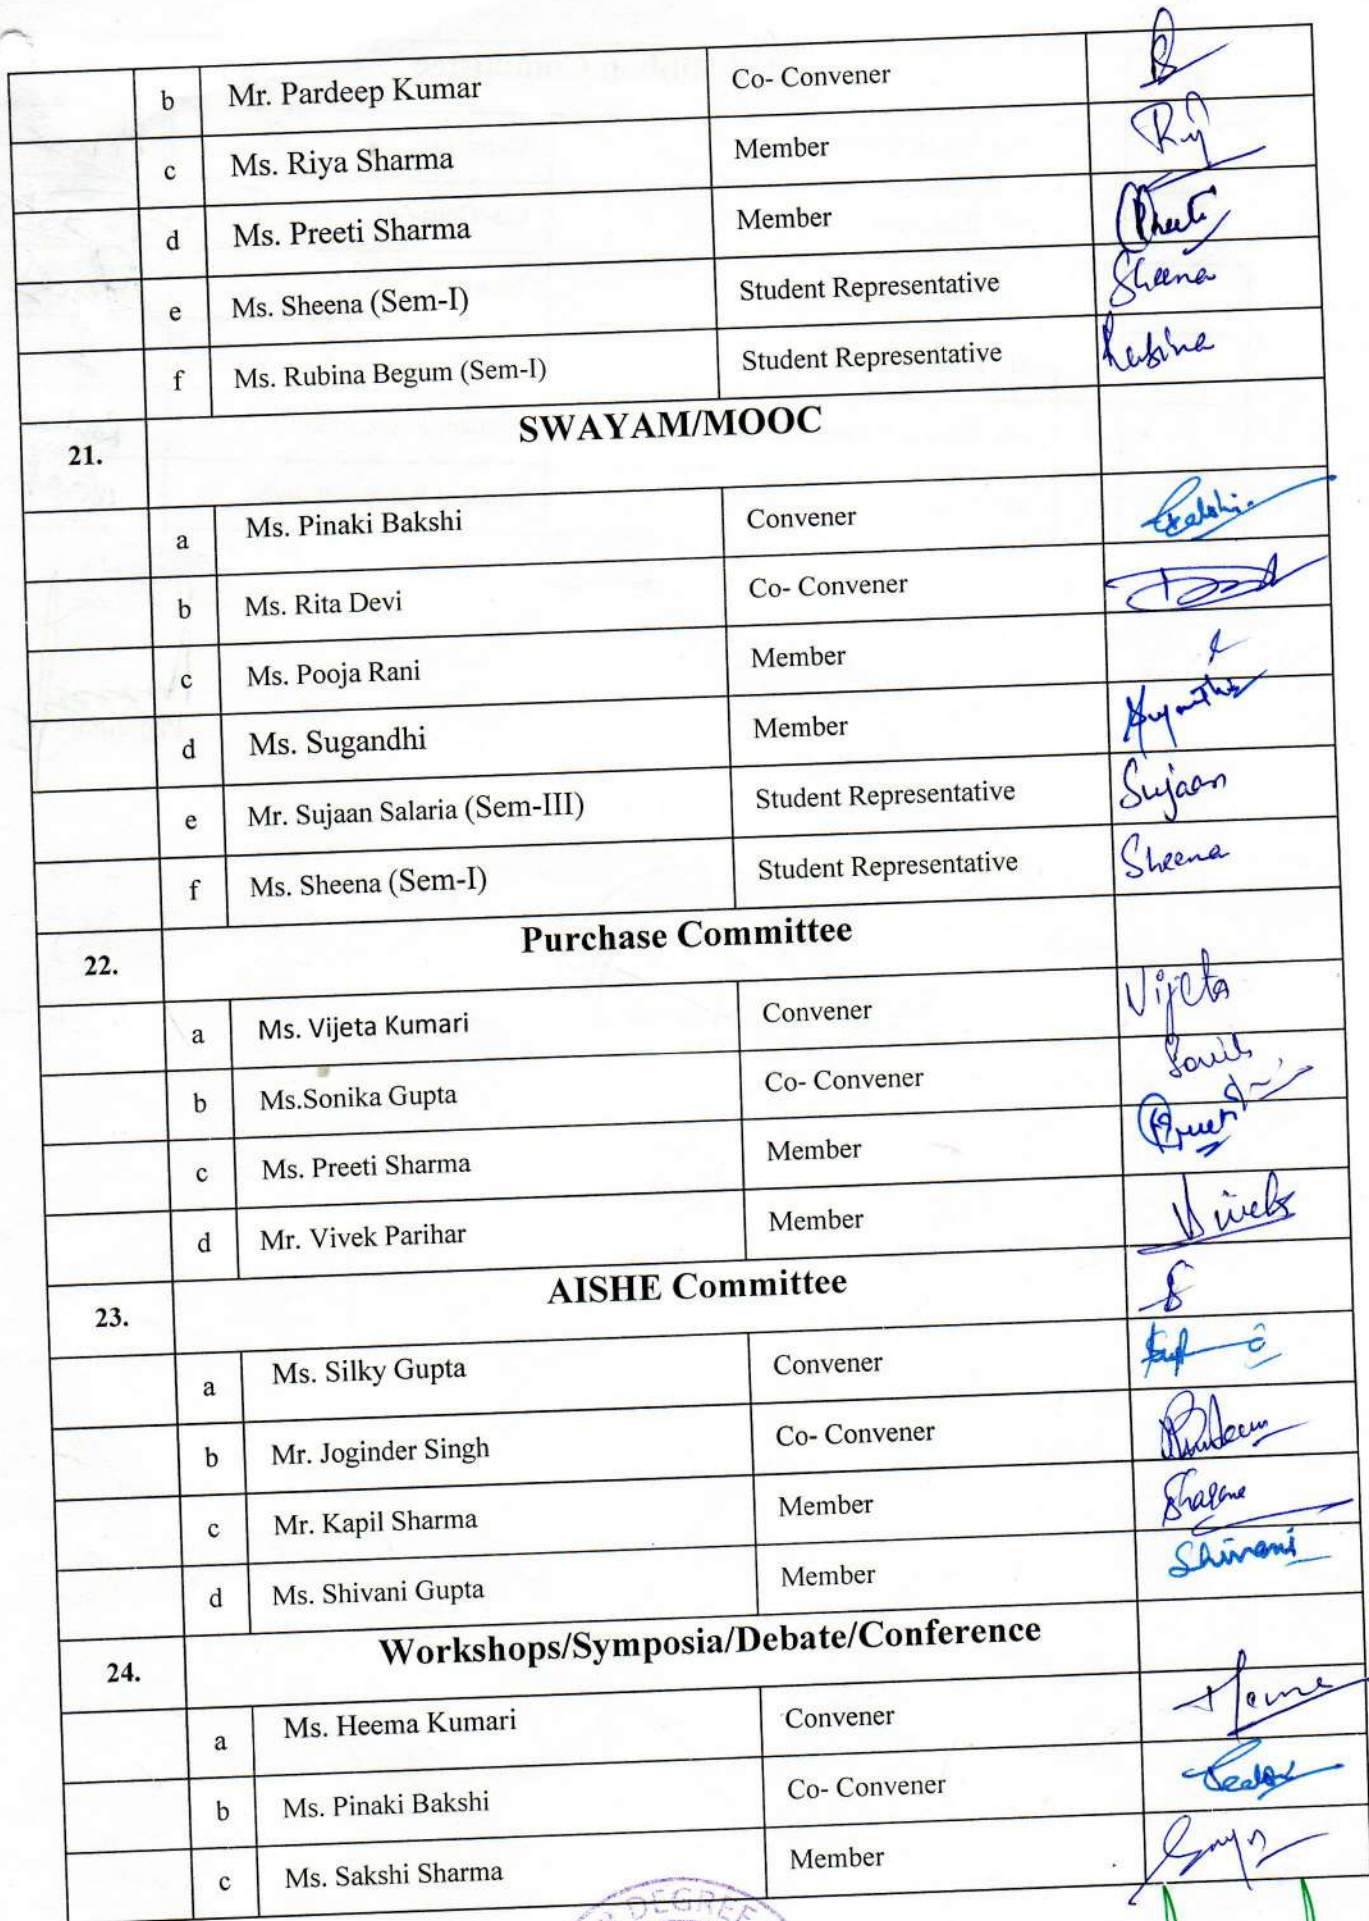 b Mr. Pardeep Kumar Co- Convener
c Ms. Riya Sharma Member
d Ms. Preeti Sharma Member Preeti
e Ms. Sheena (Sem-I) Student Representative Sheena
f Ms. Rubina Begum (Sem-I) Student Representative Rubina
21. SWAYAM/MOOC
a Ms. Pinaki Bakshi Convener
b Ms. Rita Devi Co- Convener
c Ms. Pooja Rani Member
d Ms. Sugandhi Member
e Mr. Sujaan Salaria (Sem-III) Student Representative Sujaan
f Ms. Sheena (Sem-I) Student Representative Sheena
22. Purchase Committee
a Ms. Vijeta Kumari Convener Vijeta
b Ms.Sonika Gupta Co- Convener
c Ms. Preeti Sharma Member Preeti
d Mr. Vivek Parihar Member Vivek
23. AISHE Committee
a Ms. Silky Gupta Convener
b Mr. Joginder Singh Co- Convener
c Mr. Kapil Sharma Member
d Ms. Shivani Gupta Member Shivani
24. Workshops/Symposia/Debate/Conference
a Ms. Heema Kumari Convener
b Ms. Pinaki Bakshi Co- Convener
c Ms. Sakshi Sharma Member
DEGREE